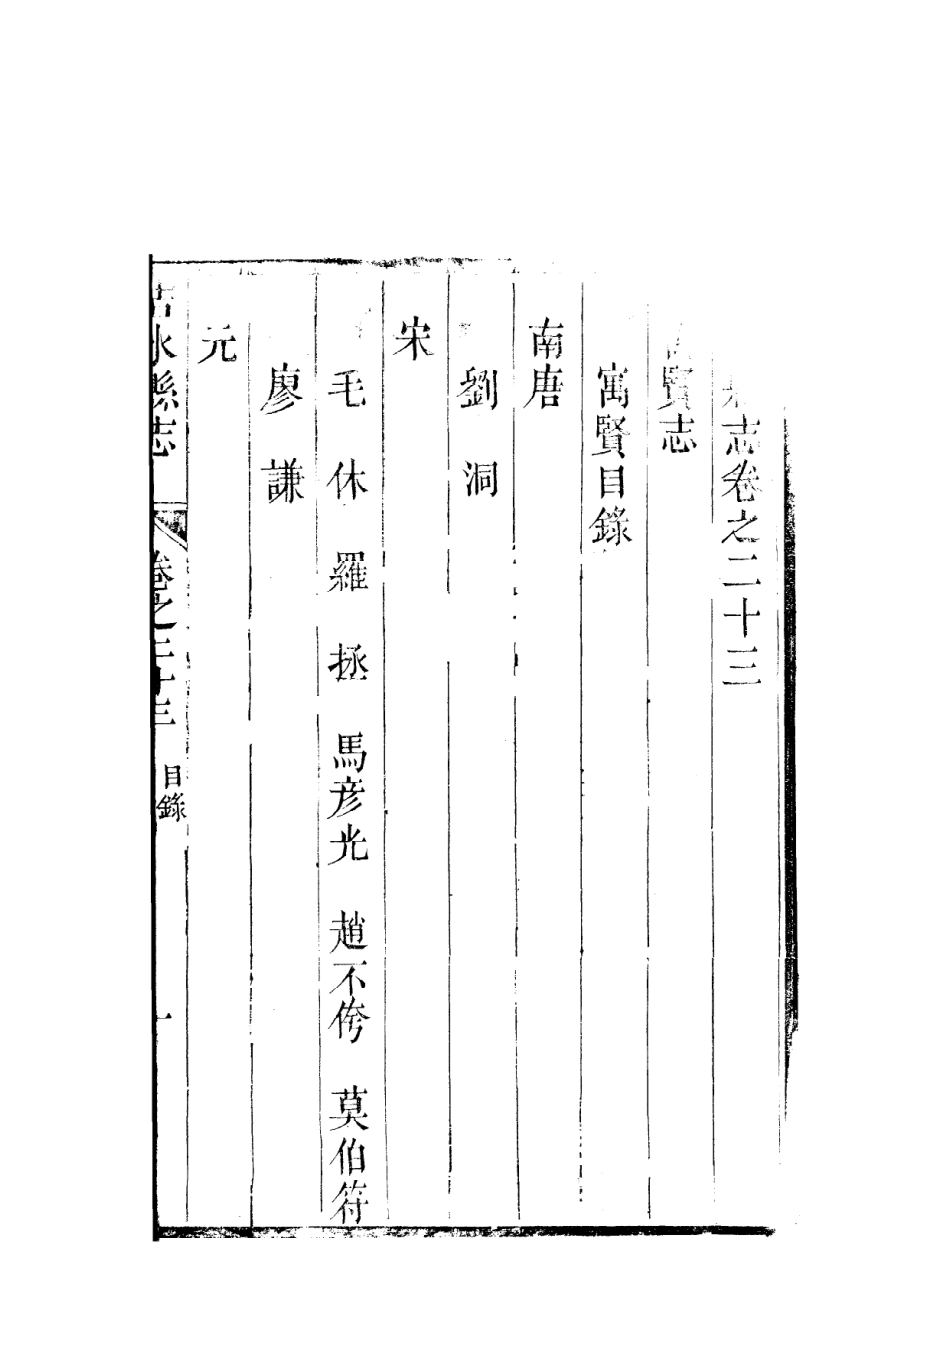 志卷之二十三
賢志
寓賢目錄
南唐
劉洞
宋
毛休 羅拯 馬彦光 趙不侉 莫伯符
廖謙
元
水縣志 卷之二十三 目錄 一